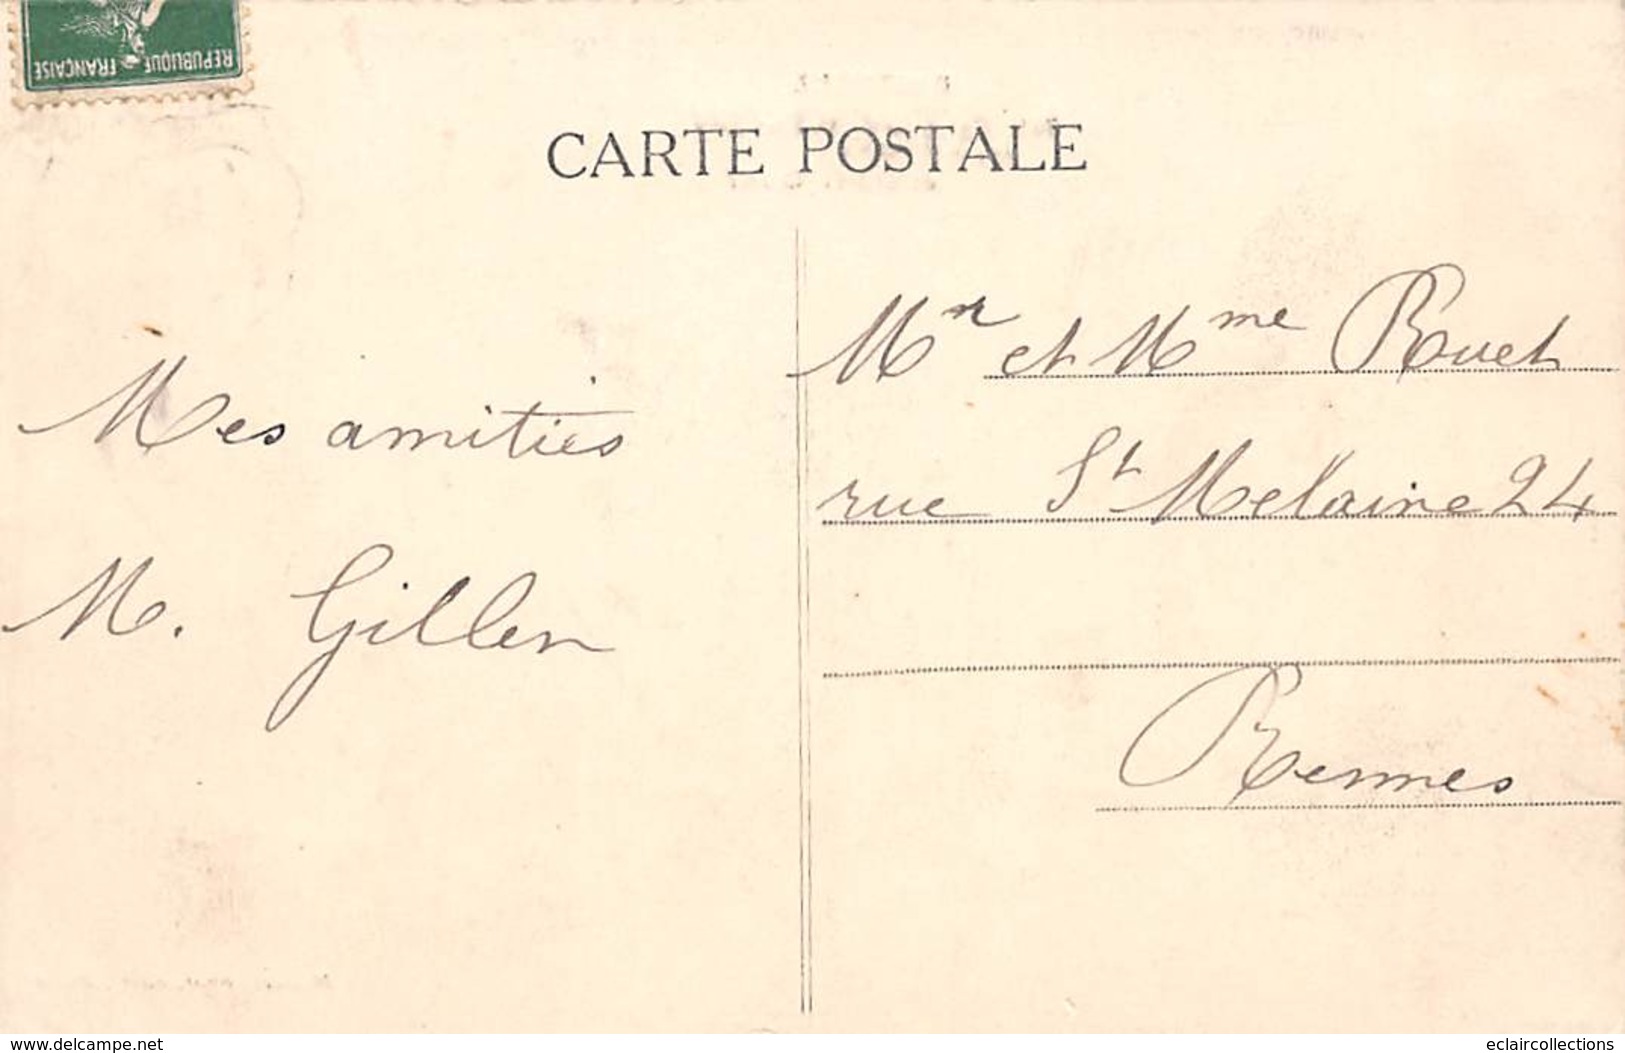 REPUBLIQUE FRANÇAISE
CARTE POSTALE
Mes amitiés
M. Gillen
Mr et Mme Ruet
rue St Melaine 24
Rennes
www.delcampe.net
eclaircollections